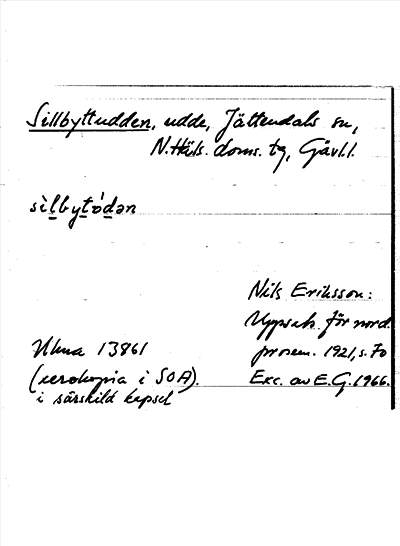 Sillbyttudden, udde, Jättendals sn,
N. Häls. doms. tg, Gävl.l.
silbytódən
Nils Eriksson:
Uppsats för nord.
prosem. 1921, s. 70
Exc. av E.G. 1966.
Ulma 13861
(xerokopia i SOA).
i särskild kapsel